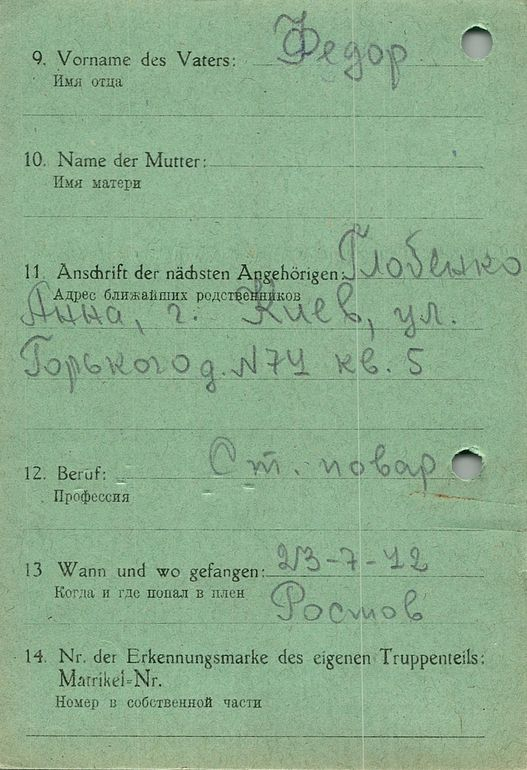 9. Vorname des Vaters: Федор
Имя отца
10. Name der Mutter:
Имя матери
11. Anschrift der nächsten Angehörigen: Глобенко
Адрес ближайших родственников
Анна, г. Киев, ул.
Горького д. N74 кв. 5
12. Beruf: Ст. повар
Профессия
13 Wann und wo gefangen: 23-7-42
Когда и где попал в плен
Ростов
14. Nr. der Erkennungsmarke des eigenen Truppenteils:
Matrikel-Nr.
Номер в собственной части